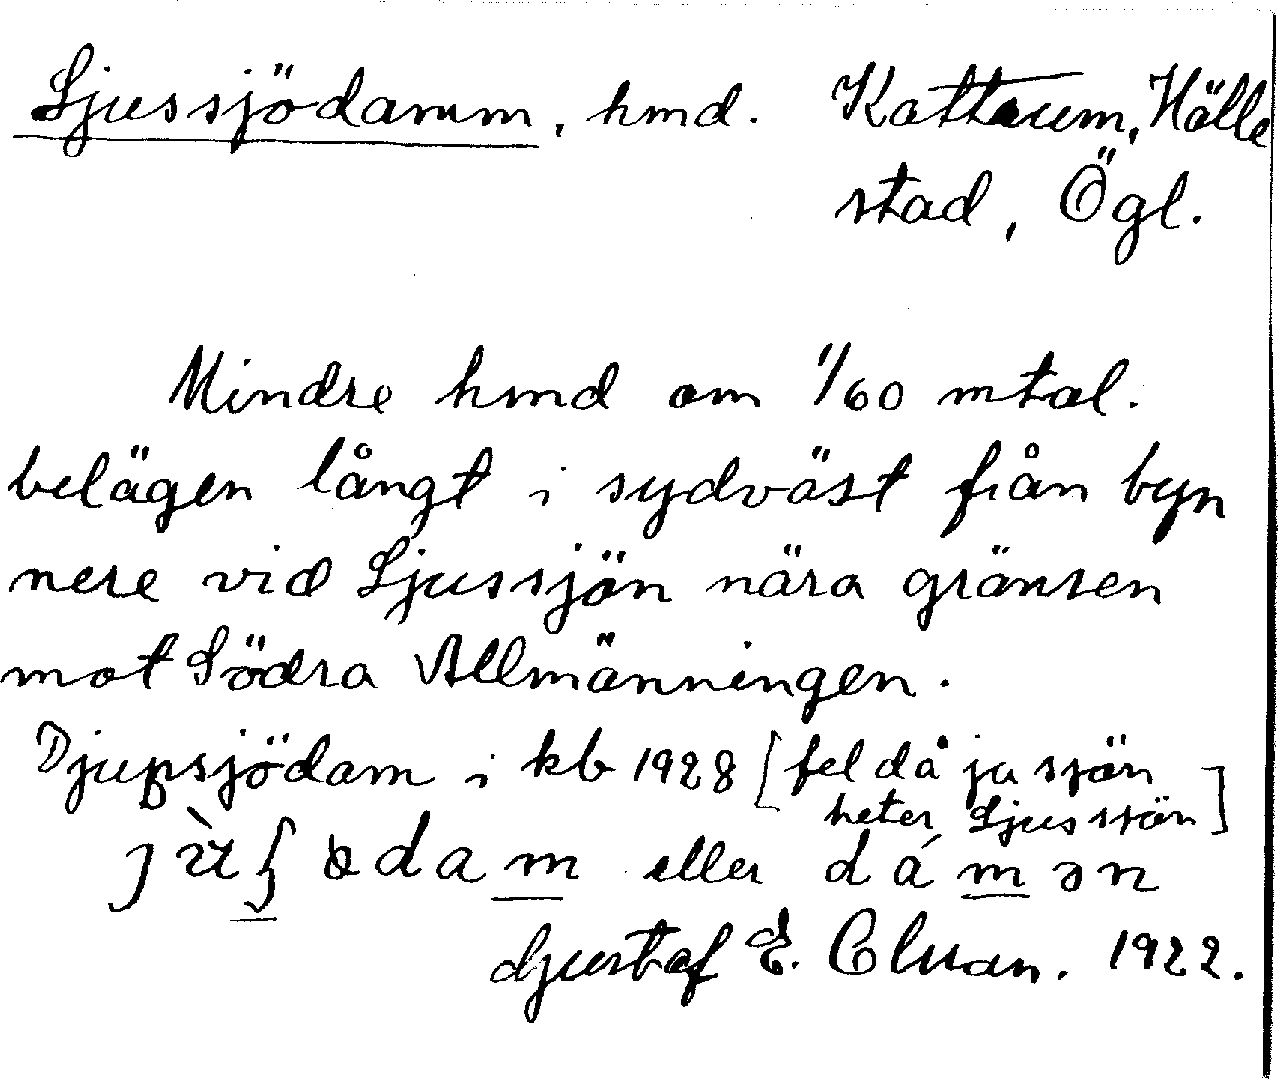 Ljussjödamm, hmd. Kattrum, Hälle
stad, Ögl.
Mindre hmd om 1/60 mtal.
belägen långt i sydväst från byn
nere vid Ljussjön nära gränsen
mot Södra Allmänningen.
Djupsjödam i kb 1928 [fel då ju sjön
heter Ljussjön]
eller dámən
Gustaf E. Clsson. 1922.